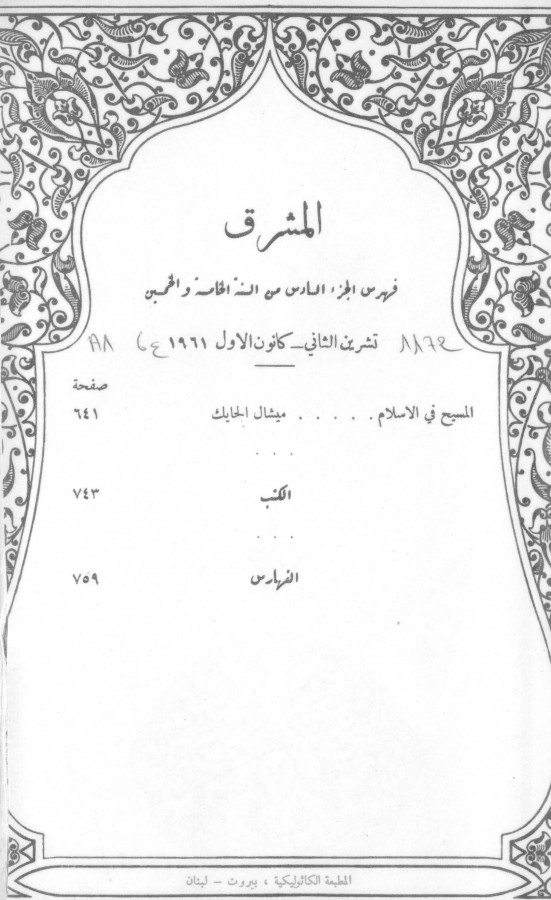 المشرق
فهرس الجزء السادس من السنة الخامسة والخمسين
تشرين الثاني – كانون الاول ١٩٦١
صفحة
المسيح في الاسلام . . . . . ميشال الحايك ٦٤١
. . .
الكتب ٧٤٣
. . .
الفهارس ٧٥٩
المطبعة الكاثوليكية ، بيروت – لبنان